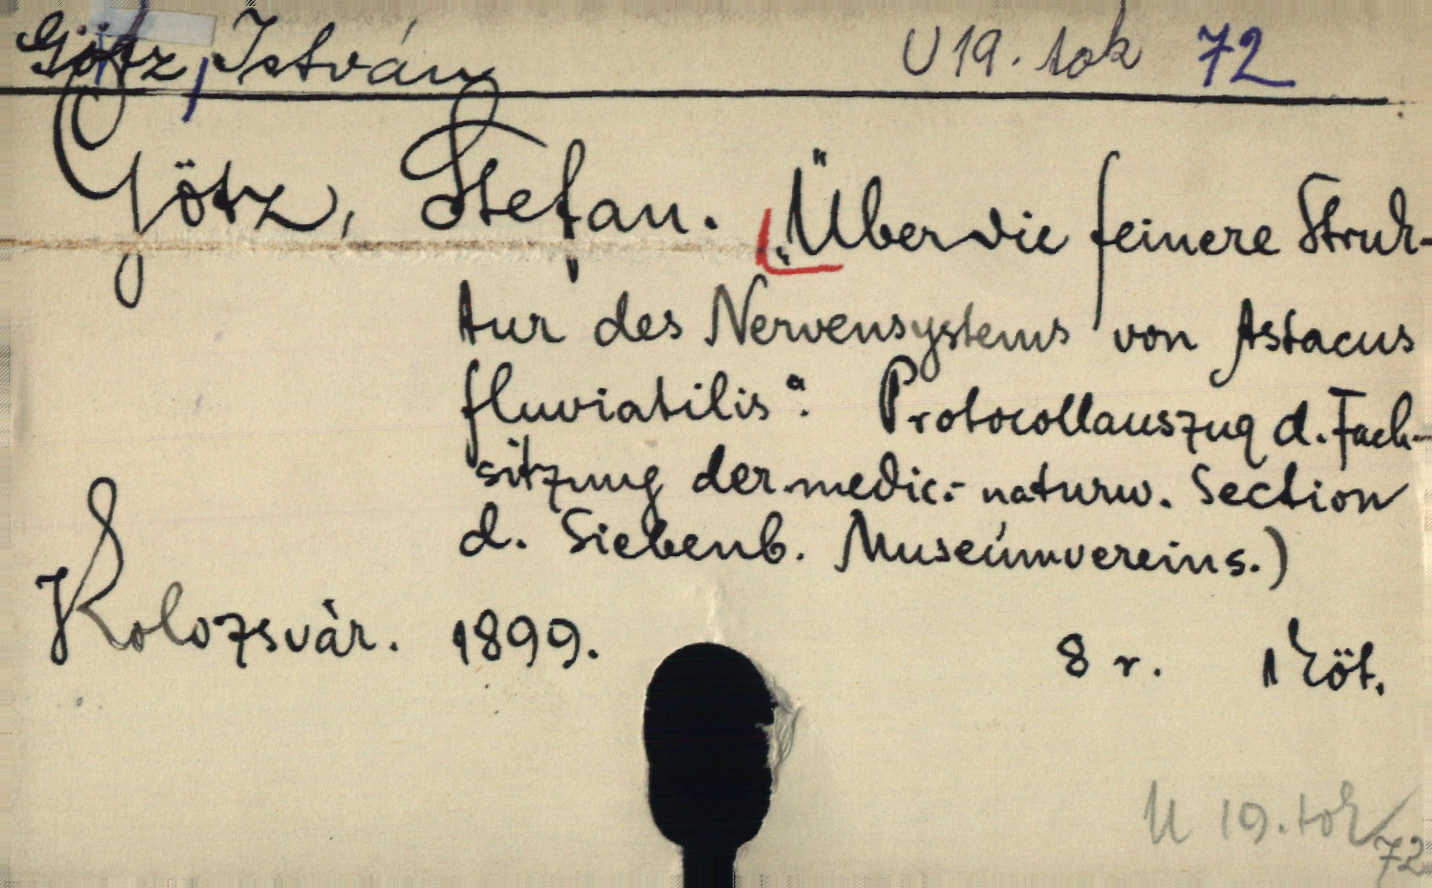 Götz, István U 19. tok 72
Götz, Stefan. „Über die feinere Struk-
tur des Nervensystems von Astacus
fluviatilis“. Protocollauszug d. Fach-
sitzung der medic.- naturw. Section
d. Siebenb. Museumvereins.)
Kolozsvár. 1899. 8 r. 1 köt.
U 19. tok
72